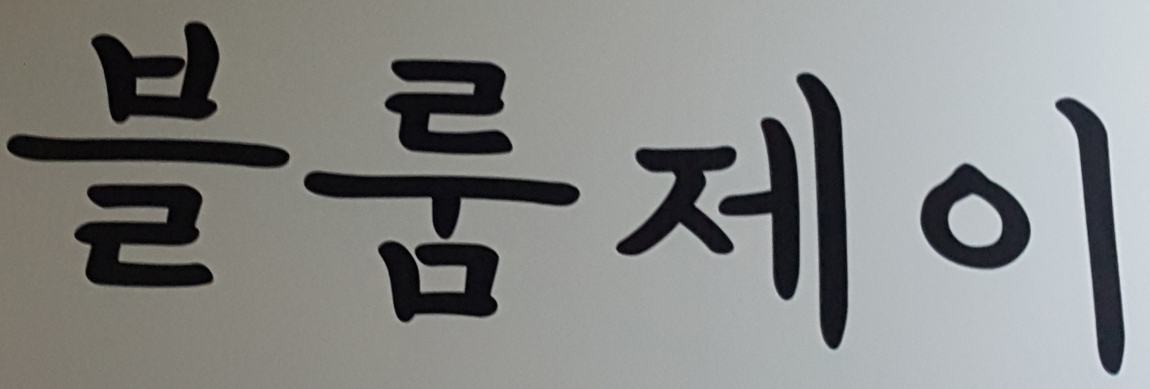 블룸제이